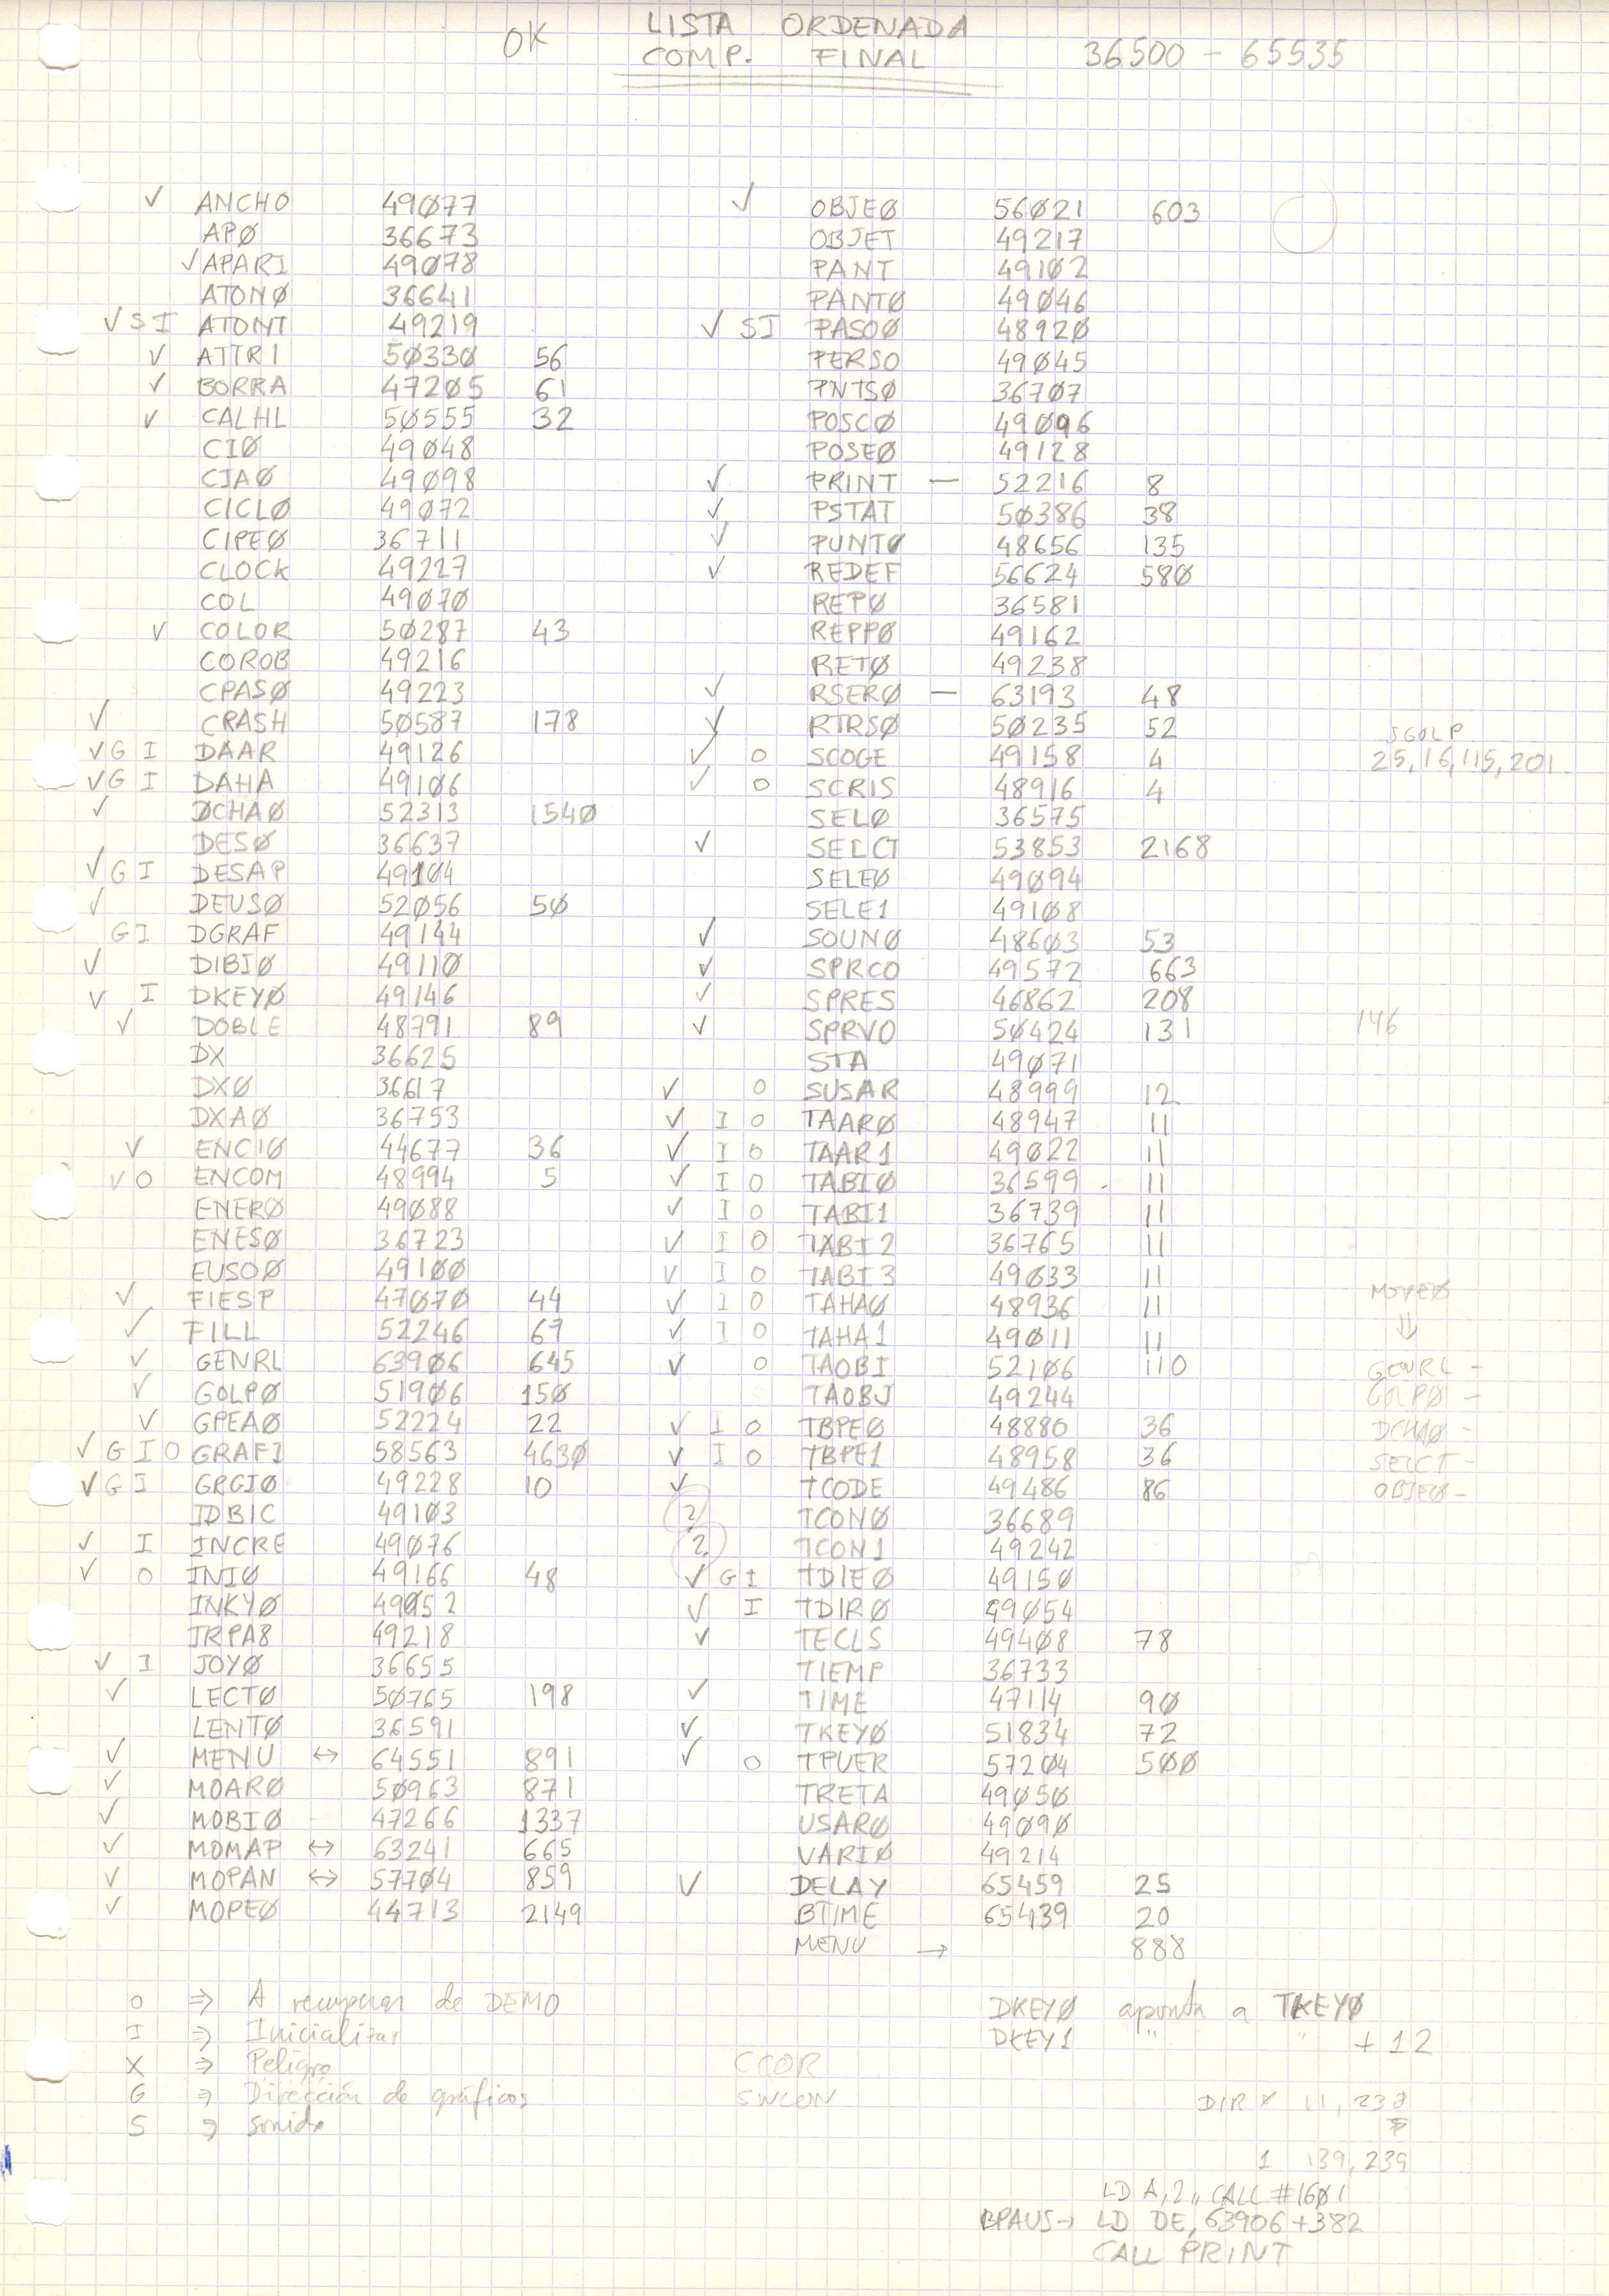 OK LISTA ORDENADA
COMP. FINAL 36500 - 65535
✓ ANCHO 49Ø77
APØ 36673
✓ APARI 49Ø78
ATONØ 36641
✓ S I ATONT 49219
✓ ATTRI 5Ø33Ø 56
✓ BORRA 472Ø5 61
✓ CALHL 5Ø555 32
CIØ 49Ø48
CIAØ 49Ø98
CICLØ 49Ø72
CIPEØ 36711
CLOCK 49227
COL 49Ø7Ø
✓ COLOR 5Ø287 43
COROB 49216
CPASØ 49223
✓ CRASH 5Ø587 178
✓ G I DAAR 49126
✓ G I DAHA 491Ø6
✓ DCHAØ 52313 154Ø
DESØ 36637
✓ G I DESAP 491Ø4
✓ DEUSØ 52Ø56 5Ø
G I DGRAF 49144
✓ DIBIØ 4911Ø
✓ I DKEYØ 49146
✓ DOBLE 48791 89
DX 36625
DXØ 36617
DXAØ 36753
✓ ENCIØ 44677 36
✓ O ENCOM 48994 5
ENERØ 49Ø88
ENESØ 36723
EUSOØ 491ØØ
✓ FIESP 47Ø7Ø 44
✓ FILL 52246 67
✓ GENRL 639Ø6 645
✓ GOLPØ 519Ø6 15Ø
✓ GPEAØ 52224 22
✓ G I O GRAFI 58563 463Ø
✓ G I GRGIØ 49228 10
IDBIC 491Ø3
✓ I INCRE 49Ø76
✓ O INIØ 49166 48
INKYØ 49Ø52
IRPA8 49218
✓ I JOYØ 36655
✓ LECTØ 5Ø765 198
LENTØ 36591
✓ MENU ↔ 64551 891
✓ MOARØ 5Ø963 871
✓ MOBIØ 47266 1337
✓ MOMAP ↔ 63241 665
✓ MOPAN ↔ 577Ø4 859
✓ MOPEØ 44713 2149
✓ OBJEØ 56Ø21 603
OBJET 49217
PANT 491Ø2
PANTØ 49Ø46
✓ SI PASOØ 4892Ø
PERSO 49Ø45
PNTSØ 367Ø7
POSCØ 49Ø96
POSEØ 49128
✓ PRINT — 52216 8
✓ PSTAT 5Ø386 38
✓ PUNTØ 48656 135
✓ REDEF 56624 58Ø
REPØ 36581
REPPØ 49162
RETØ 49238
✓ RSERØ — 63193 48
✓ RTRSØ 5Ø235 52
✓ O SCOGE 49158 4
✓ O SCRIS 48916 4
SELØ 36575
✓ SELCT 53853 2168
SELEØ 49Ø94
SELE1 491Ø8
✓ SOUNØ 486Ø3 53
✓ SPRCO 49572 663
✓ SPRES 46862 2Ø8
✓ SPRVO 5Ø424 131
STA 49Ø71
✓ O SUSAR 48999 12
✓ I O TAARØ 48947 11
✓ I O TAAR1 49Ø22 11
✓ I O TABIØ 36599 11
✓ I O TABI1 36739 11
✓ I O TABI2 36765 11
✓ I O TABI3 49Ø33 11
✓ I O TAHAØ 48936 11
✓ I O TAHA1 49Ø11 11
✓ O TAOBI 521Ø6 110
TAOBJ 49244
✓ I O TBPEØ 48880 36
✓ I O TBPE1 48958 36
✓ TCODE 49486 86
? TCONØ 36689
? TCON1 49242
✓ G I TDIEØ 4915Ø
✓ I TDIRØ 49Ø54
✓ TECLS 494Ø8 78
TIEMP 36733
✓ TIME 47114 9Ø
✓ TKEYØ 51834 72
✓ O TPUER 572Ø4 5ØØ
TRETA 49Ø5Ø
USARØ 49Ø9Ø
VARIØ 49214
✓ DELAY 65459 25
BTIME 65439 20
MENU → 888
SGOLP
25,16,115,201
146
MOPEØ
⇓
GENRL -
GOLPØ -
DCHAØ -
SELCT -
OBJEØ -
O ⇒ A recuperar de DEMO
I ⇒ Inicializar
X ⇒ Peligro
G ⇒ Dirección de gráficos
S ⇒ Sonido
CCOR
SWCON
DKEYØ apunta a TKEYØ
DKEY1 " " +12
DIR Ø 11, 238
1 139, 239
LD A,2,, CALL #16Ø1
BPAUS→ LD DE, 63906+382
CALL PRINT